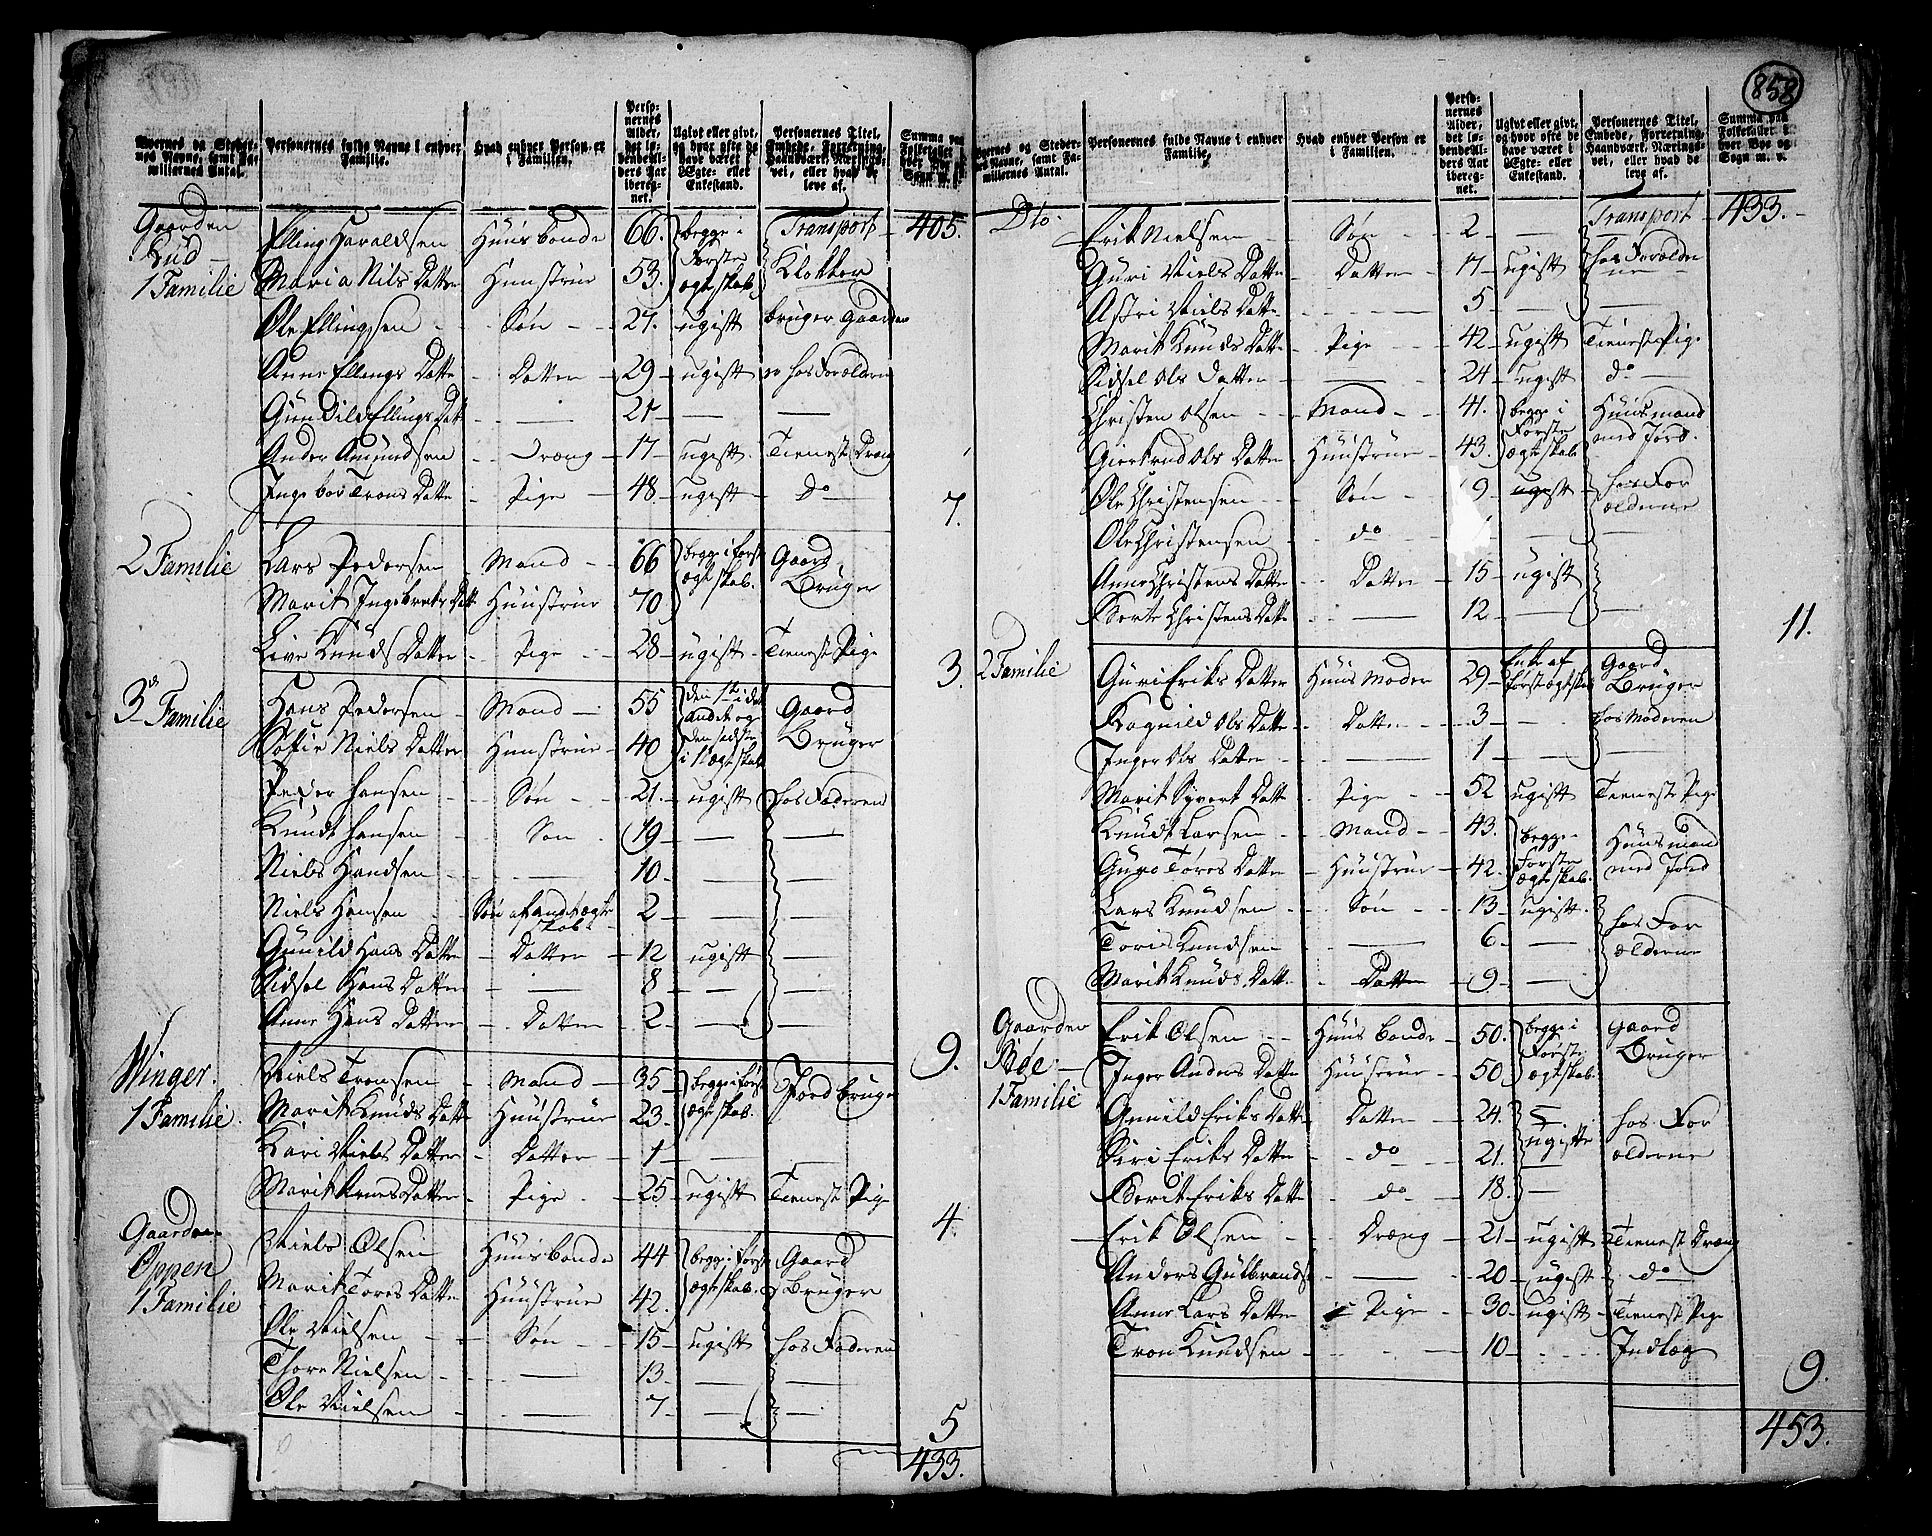 858
Byernes og Stedernes Navne, samt Familliernes Antal.
Personernes fulde Navne i enhver Familie.
Hvad enhver Person er i Familien.
Personernes Alder, det løbende Alders Aar iberegnet.
Ugivt eller givt, og hvor ofte de have været i Ægte- eller Enkestand.
Personernes Titel, Embede, Forretning, Haandværk, Næringsvei, eller hvad de leve af.
Summa paa Folketallet i hver Bye og Sogn m. v.
Transport 405.
Gaarden Rud 1 Familie
Elling Haraldsen Huusbonde 66. begge i Første ægteskab Klokker
Maria Nils Datter Huustrue 53.
Ole Ellingsen Søn 27. ugift bruger Gaarden
Anne Ellings Datte Datter 29 ugift er hos Forældrene
Gunild Ellings Datt — 21 — —
Ander Amundsen Dreng 17 ugift Tieneste Dreng
Ingebor Trons Datte Pige 48. ugift do
7.
2 Familie
Lars Pedersen Mand 66 begge i først ægteskab. Gaard Bruger
Marit Ingebrets Datt Huustrue 70
Live Knuds Datter Pige 28 ugift Tieneste Pige
3.
3de Familie
Hans Pedersen Mand 55 den 1te i det andet og den sidste i 1te ægteskab Gaard Bruger
Sofie Niels Datter Huustrue 40
Peder Hansen Søn 21. ugift hos Faderen
Knudt Hansen Søn 19 — —
Niels Handsen — 10 — —
Niels Hansen Søn af andet ægteskab 2 — —
Gunild Hans Datter Datter 12 ugift —
Sidsel Hans Datter — 8 — —
Anne Hans Datter Datter 2 — —
9.
Winger. 1 Familie.
Niels Tronsen Mand 35 begge i først ægteskab. Jord bruger
Marit Knuds Datte Huustrue 23.
Kari Niels Datter Datter 1 — —
Marit Arnes Datter Pige 25 ugift Tieneste Pige
4.
Gaarden Oppen 1 Familie
Niels Olsen Huusbonde 44 begge i først ægteskab. Gaard Bruger
Marit Tores Datte Huustrue 42.
Ole Nielsen Søn 15 ugift hos Faderen
Thore Nielsen — 13 — —
Ole Nielsen — 7 — —
5
433.
Byernes og Stedernes Navne, samt Familliernes Antal.
Personernes fulde Navne i enhver Familie.
Hvad enhver Person er i Familien.
Personernes Alder, det løbende Alders Aar iberegnet.
Ugivt eller givt, og hvor ofte de have været i Ægte- eller Enkestand.
Personernes Titel, Embede, Forretning, Haandværk, Næringsvei, eller hvad de leve af.
Summa paa Folketallet i hver Bye og Sogn m. v.
Transport 433.
Dto
Erik Nielsen Søn 2 — hos Forældrene
Guri Niels Datte Datter 17 ugift
Astri Niels Datte — 5 — —
Marit Knuds Datte Pige 42 ugift Tieneste Pige
Sidsel Ols Datter — 24 ugift do
Christen Olsen Mand 41. begge i Første ægteskab Huusmand med Jord.
Giertrud Ols Datte Huustrue 43.
Ole Christensen Søn 9 ugift hos Forældrene
Ole Christensen do — —
Anne Christens Datte Datter 15 ugift
Berte Christens Datte — 12 — —
11.
2 Familie
Guri Eriks Datter Huus Moder 29 Enke af først ægteskab Gaard Bruger
Ragnild Ols Datte Datter 3 — hos Moderen
Inger Ols Datte — 1 — —
Marit Syvert Datte Pige 52 ugift Tieneste Pige
Knudt Larsen Mand 43. begge Første ægteskab. Huusmand med Jord
Guro Tores Datte Huustrue 42.
Lars Knudsen Søn 13 ugift. hos Forældrene
Toris Knudsen — 6 —
Marit Knuds Datt Datter 9 —
Gaarden Bøe 1 Familie
Erik Olsen Huusbonde 50. begge i Første ægteskab. Gaard Bruger
Inger Anders Datte Huustrue 50
Gunild Eriks Datt Datter 24. ugifte hos Forældrene
Siri Eriks Datte do 21.
Berit Eriks Datte do 18. —
Erik Olsen Dræng 21 ugift Tieneste Dræng
Anders Gulbrands — 20 ugift do
Anne Lars Datte Pige 30 ugift Tieneste Pige
Tron Knudsen 10 Indlæg
9.
453.